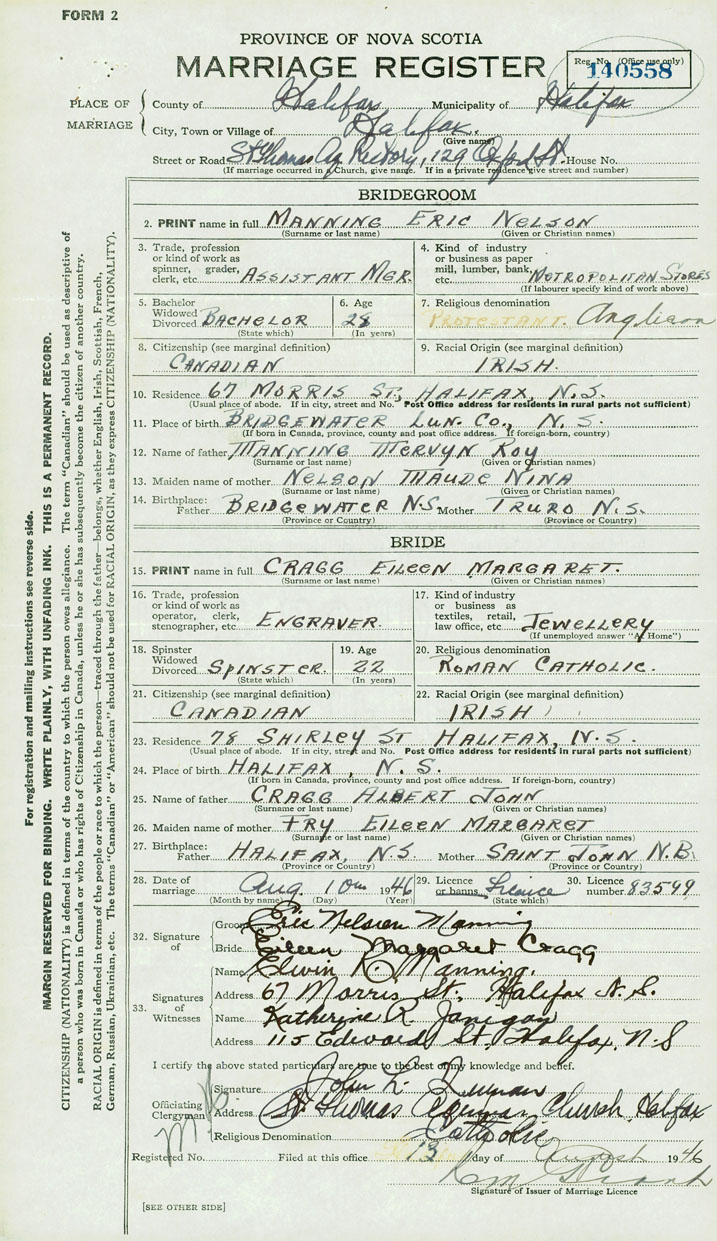 FORM 2
PROVINCE OF NOVA SCOTIA
MARRIAGE REGISTER
Reg. No. (Office use only)
140558
PLACE OF MARRIAGE
County of Halifax Municipality of Halifax
City, Town or Village of Halifax.
(Give name)
Street or Road St Thomas Aq Rectory, 129 Oxford St. House No.
(If marriage occurred in a Church, give name. If in a private residence give street and number)
BRIDEGROOM
2. PRINT name in full MANNING ERIC NELSON
(Surname or last name) (Given or Christian names)
3. Trade, profession or kind of work as spinner, grader, clerk, etc. ASSISTANT MGR.
4. Kind of industry or business as paper mill, lumber, bank, etc. METROPOLITAN STORES
(If labourer specify kind of work above)
5. Bachelor Widowed Divorced BACHELOR
(State which)
6. Age 28
(In years)
7. Religious denomination PROTESTANT. Anglican
8. Citizenship (see marginal definition) CANADIAN
9. Racial Origin (see marginal definition) IRISH.
10. Residence 67 MORRIS ST., HALIFAX, N.S.
(Usual place of abode. If in city, street and No. Post Office address for residents in rural parts not sufficient)
11. Place of birth BRIDGEWATER LUN. CO., N. S.
(If born in Canada, province, county and post office address. If foreign-born, country)
12. Name of father MANNING MERVYN ROY
(Surname or last name) (Given or Christian names)
13. Maiden name of mother NELSON MAUDE NINA
(Surname or last name) (Given or Christian names)
14. Birthplace: Father BRIDGEWATER N.S. Mother TRURO N.S.
(Province or Country) (Province or Country)
BRIDE
15. PRINT name in full CRAGG EILEEN MARGARET.
(Surname or last name) (Given or Christian names)
16. Trade, profession or kind of work as operator, clerk, stenographer, etc. ENGRAVER.
17. Kind of industry or business as textiles, retail, law office, etc. JEWELLERY
(If unemployed answer "At Home")
18. Spinster Widowed Divorced SPINSTER.
(State which)
19. Age 22
(In years)
20. Religious denomination ROMAN CATHOLIC.
21. Citizenship (see marginal definition) CANADIAN
22. Racial Origin (see marginal definition) IRISH
23. Residence 78 SHIRLEY ST HALIFAX, N.S.
(Usual place of abode. If in city, street and No. Post Office address for residents in rural parts not sufficient)
24. Place of birth HALIFAX, N.S.
(If born in Canada, province, county and post office address. If foreign-born, country)
25. Name of father CRAGG ALBERT JOHN
(Surname or last name) (Given or Christian names)
26. Maiden name of mother FRY EILEEN MARGARET
(Surname or last name) (Given or Christian names)
27. Birthplace: Father HALIFAX, N.S. Mother SAINT JOHN N.B.
(Province or Country) (Province or Country)
28. Date of marriage Aug. 10th 1946
(Month by name) (Day) (Year)
29. Licence or banns Licence
(State which)
30. Licence number 83599
32. Signature of
Groom Eric Nelson Manning
Bride Eileen Margaret Cragg
33. Signatures of Witnesses
Name Elwin R. Manning.
Address 67 Morris St. Halifax N.S.
Name Katherine R. Janigan
Address 115 Edward St. Halifax, N.S
I certify the above stated particulars are true to the best of my knowledge and belief.
Officiating Clergyman
Signature John L.
Address St Thomas Aquinas Church Halifax
Religious Denomination Catholic
Registered No. Filed at this office 13 day of August 1946
Signature of Issuer of Marriage Licence
[SEE OTHER SIDE]
For registration and mailing instructions see reverse side.
MARGIN RESERVED FOR BINDING. WRITE PLAINLY, WITH UNFADING INK. THIS IS A PERMANENT RECORD.
CITIZENSHIP (NATIONALITY) is defined in terms of the country to which the person owes allegiance. The term "Canadian" should be used as descriptive of
a person who was born in Canada or who has rights of Citizenship in Canada, unless he or she has subsequently become the citizen of another country.
RACIAL ORIGIN is defined in terms of the people or race to which the person—traced through the father—belongs, whether English, Irish, Scottish, French,
German, Russian, Ukrainian, etc. The terms "Canadian" or "American" should not be used for RACIAL ORIGIN, as they express CITIZENSHIP (NATIONALITY).